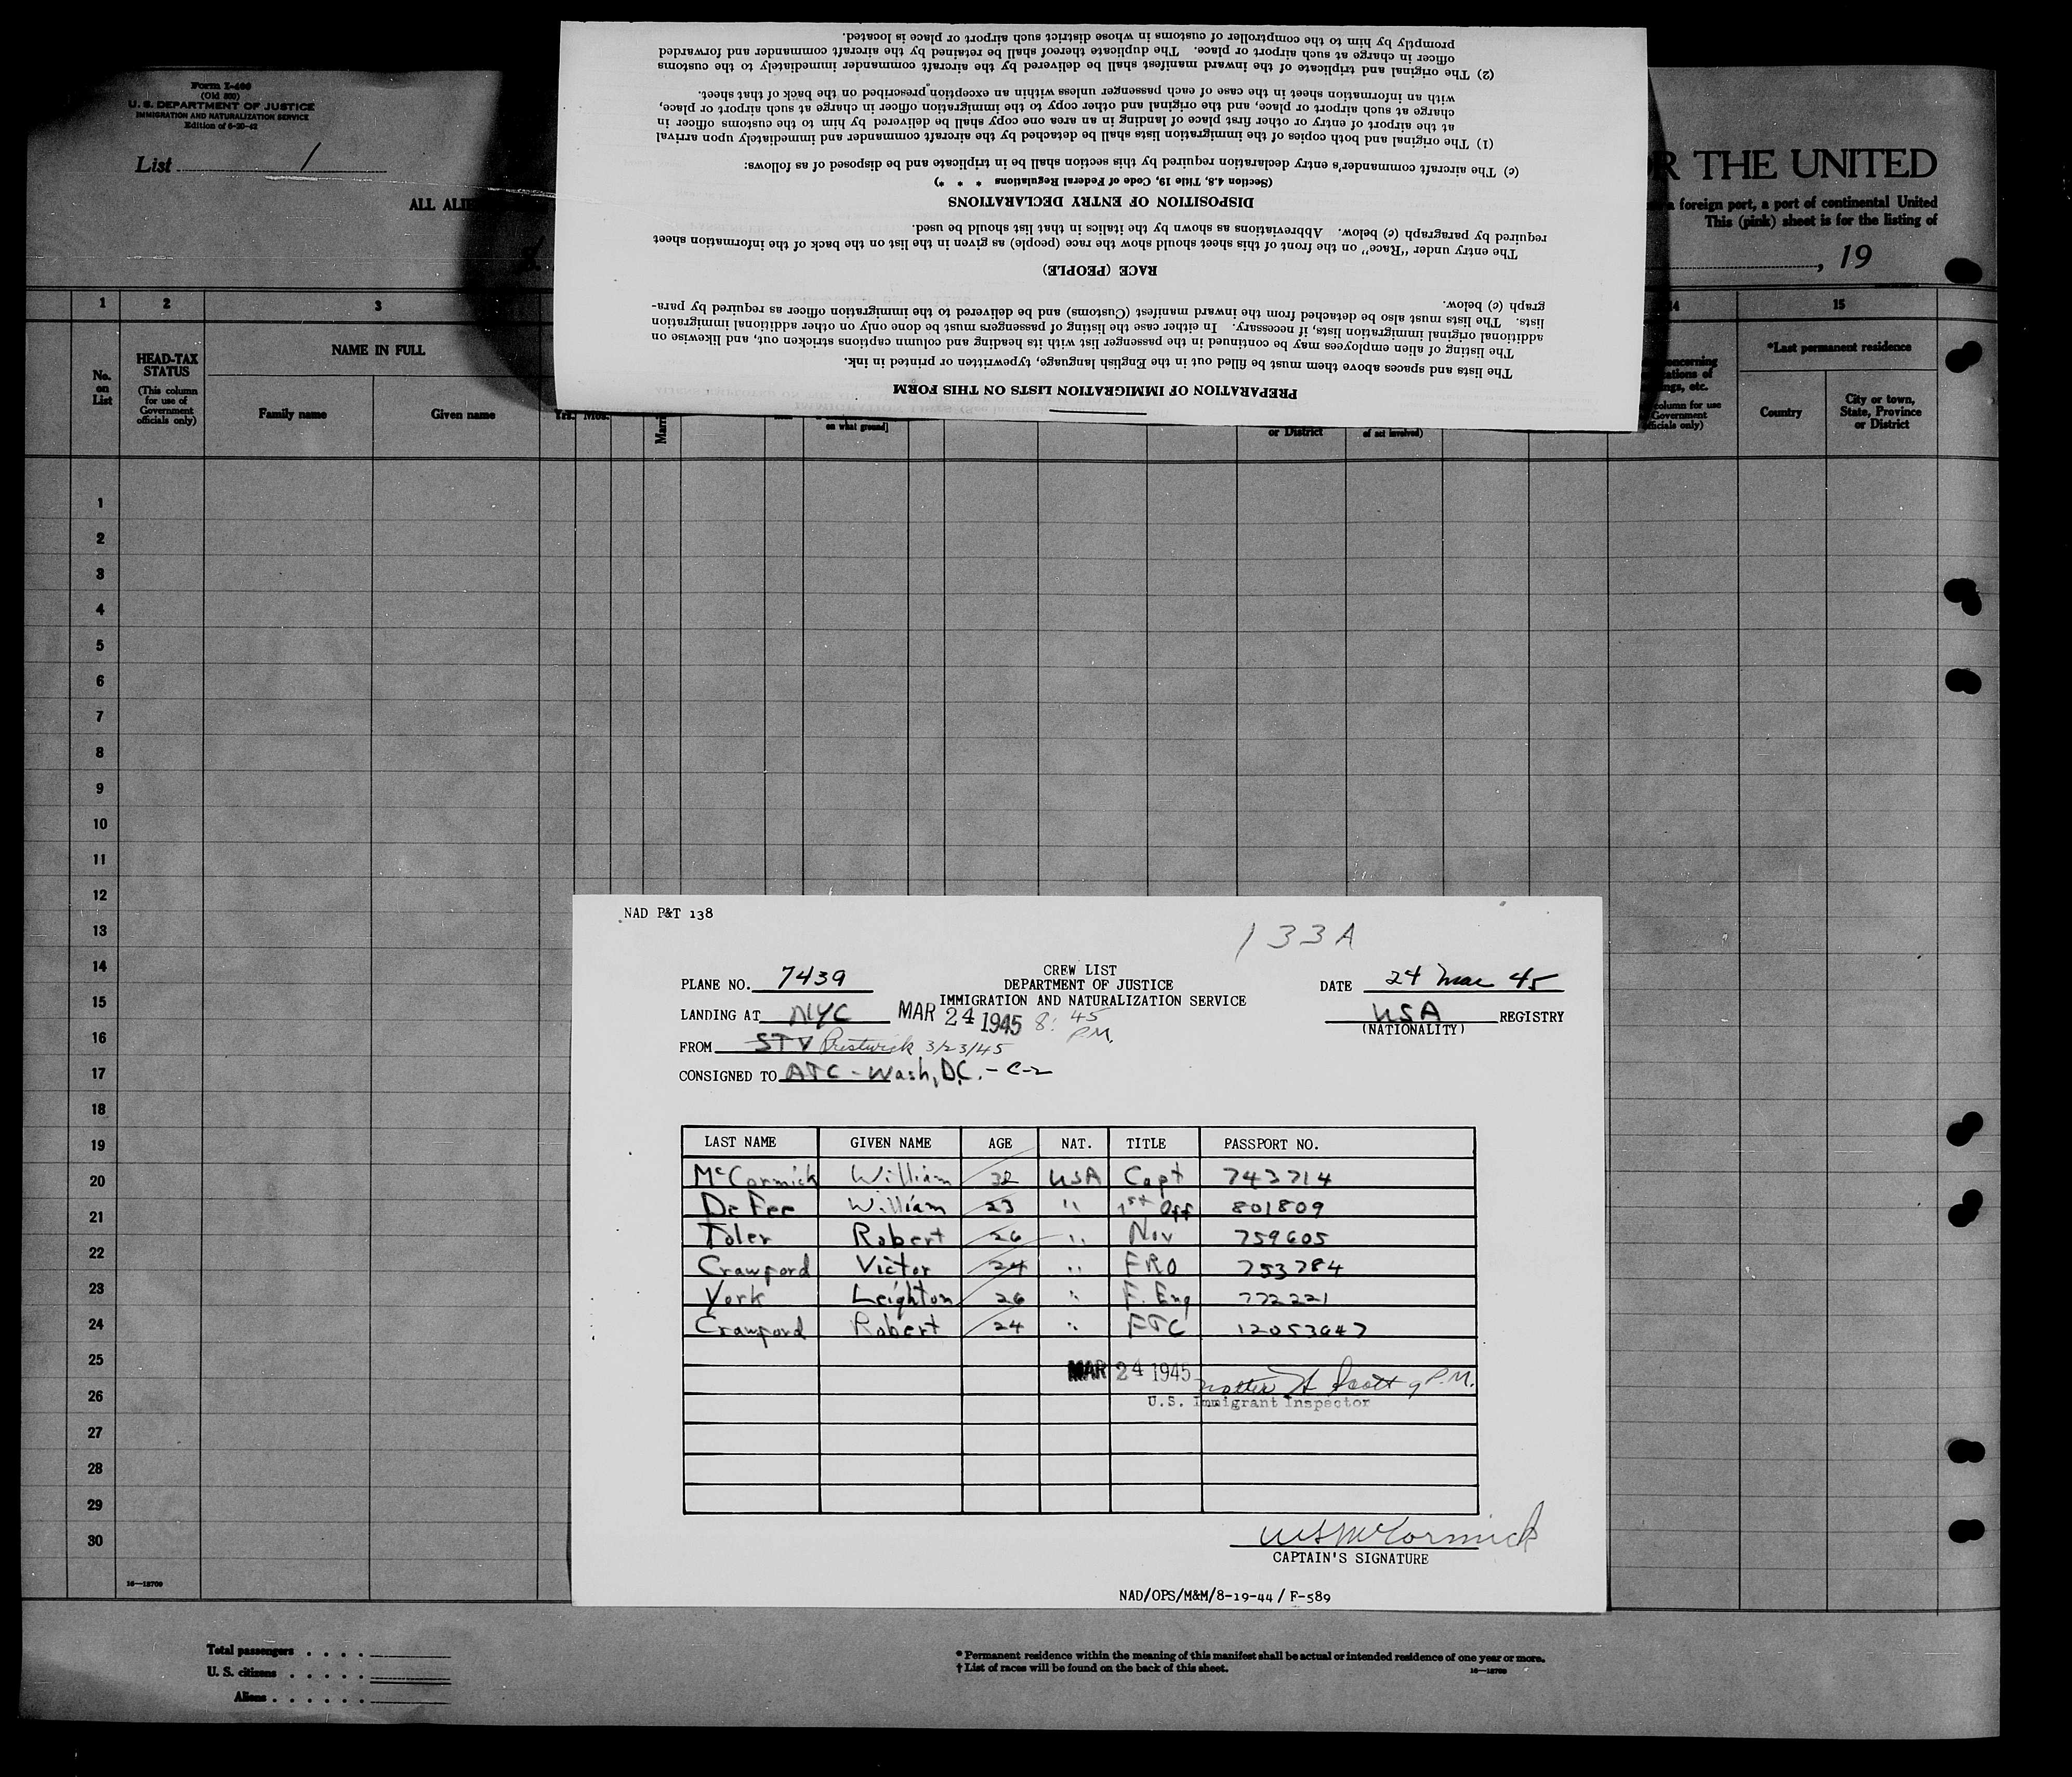 promptly by him to the comptroller of customs in whose district such airport or place is located.
officer in charge at such airport or place. The duplicate thereof shall be retained by the aircraft commander and forwarded
(2) The original and triplicate of the inward manifest shall be delivered by the aircraft commander immediately to the customs
with an information sheet in the case of each passenger unless within an exception prescribed on the back of that sheet.
charge at such airport or place, and the original and other copy to the immigration officer in charge at such airport or place,
at the airport of entry or other first place of landing in an area one copy shall be delivered by him to the customs officer in
(1) The original and both copies of the immigration lists shall be detached by the aircraft commander and immediately upon arrival
(c) The aircraft commander's entry declaration required by this section shall be in triplicate and be disposed of as follows:
(Section 4.8, Title 19, Code of Federal Regulations * * *)
DISPOSITION OF ENTRY DECLARATIONS
required by paragraph (c) below. Abbreviations as shown by the italics in that list should be used.
The entry under "Race" on the front of this sheet should show the race (people) as given in the list on the back of the information sheet
RACE (PEOPLE)
graph (c) below.
lists. The lists must also be detached from the inward manifest (Customs) and be delivered to the immigration officer as required by para-
additional original immigration lists, if necessary. In either case the listing of passengers must be done only on other additional immigration
The listing of alien employees may be continued in the passenger list with its heading and column captions stricken out, and likewise on
The lists and spaces above them must be filled out in the English language, typewritten or printed in ink.
PREPARATION OF IMMIGRATION LISTS ON THIS FORM
Form I-466
(Old 500)
U. S. DEPARTMENT OF JUSTICE
IMMIGRATION AND NATURALIZATION SERVICE
Edition of 6-20-42
List 1
ALL ALIE
R THE UNITED
a foreign port, a port of continental United
This (pink) sheet is for the listing of
, 19
1 2 3 14 15
No. on List
HEAD-TAX STATUS
(This column for use of Government officials only)
NAME IN FULL
Family name Given name
Yrs. Mos.
on what ground]
or District
of act involved)
column for use
Government
officials only)
*Last permanent residence
Country
City or town, State, Province or District
1
2
3
4
5
6
7
8
9
10
11
12
13
14
15
16
17
18
19
20
21
22
23
24
25
26
27
28
29
30
16—12709
NAD P&T 138
133A
CREW LIST
DEPARTMENT OF JUSTICE
IMMIGRATION AND NATURALIZATION SERVICE
PLANE NO. 7439
DATE 24 Mar 45
LANDING AT NYC MAR 24 1945 8:45 P.M.
USA REGISTRY
(NATIONALITY)
FROM STV Prestwick 3/23/45
CONSIGNED TO ATC - Wash, D.C. - C-2
LAST NAME GIVEN NAME AGE NAT. TITLE PASSPORT NO.
McCormick William 32 USA Capt 743714
DeFee William 23 " 1st Off 801809
Toler Robert 26 " Nav 759605
Crawford Victor 24 " FRO 753784
York Leighton 26 " F. Eng 772221
Crawford Robert 24 " FTC 12053647
MAR 24 1945 Walter H Scott 9 P.M.
U.S. Immigrant Inspector
WSMcCormick
CAPTAIN'S SIGNATURE
NAD/OPS/M&M/8-19-44 / F-589
Total passengers . . . .
U. S. citizens . . . . .
Aliens . . . . . .
* Permanent residence within the meaning of this manifest shall be actual or intended residence of one year or more.
† List of races will be found on the back of this sheet.
16—12709